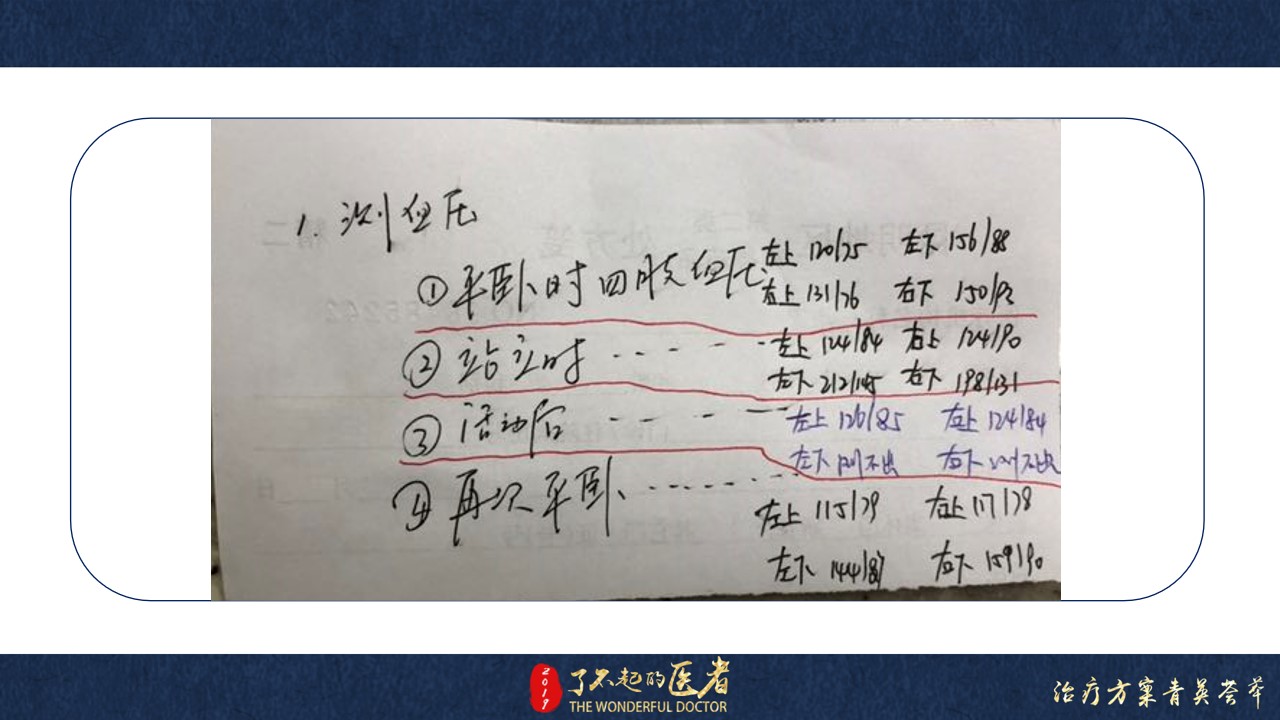 1. 测血压
① 平卧时四肢血压 左上 120/75 左下 156/88
右上 131/76 右下 150/92
② 站立时 ---- 左上 124/84 右上 124/90
左下 212/145 右下 198/131
③ 活动后 ---- 左上 126/85 右上 124/84
左下 测不出 右下 测不出
④ 再次平卧 ------ 左上 115/79 右上 117/78
左下 144/87 右下 159/90
2019 了不起的医者
THE WONDERFUL DOCTOR
治疗方案青英荟萃